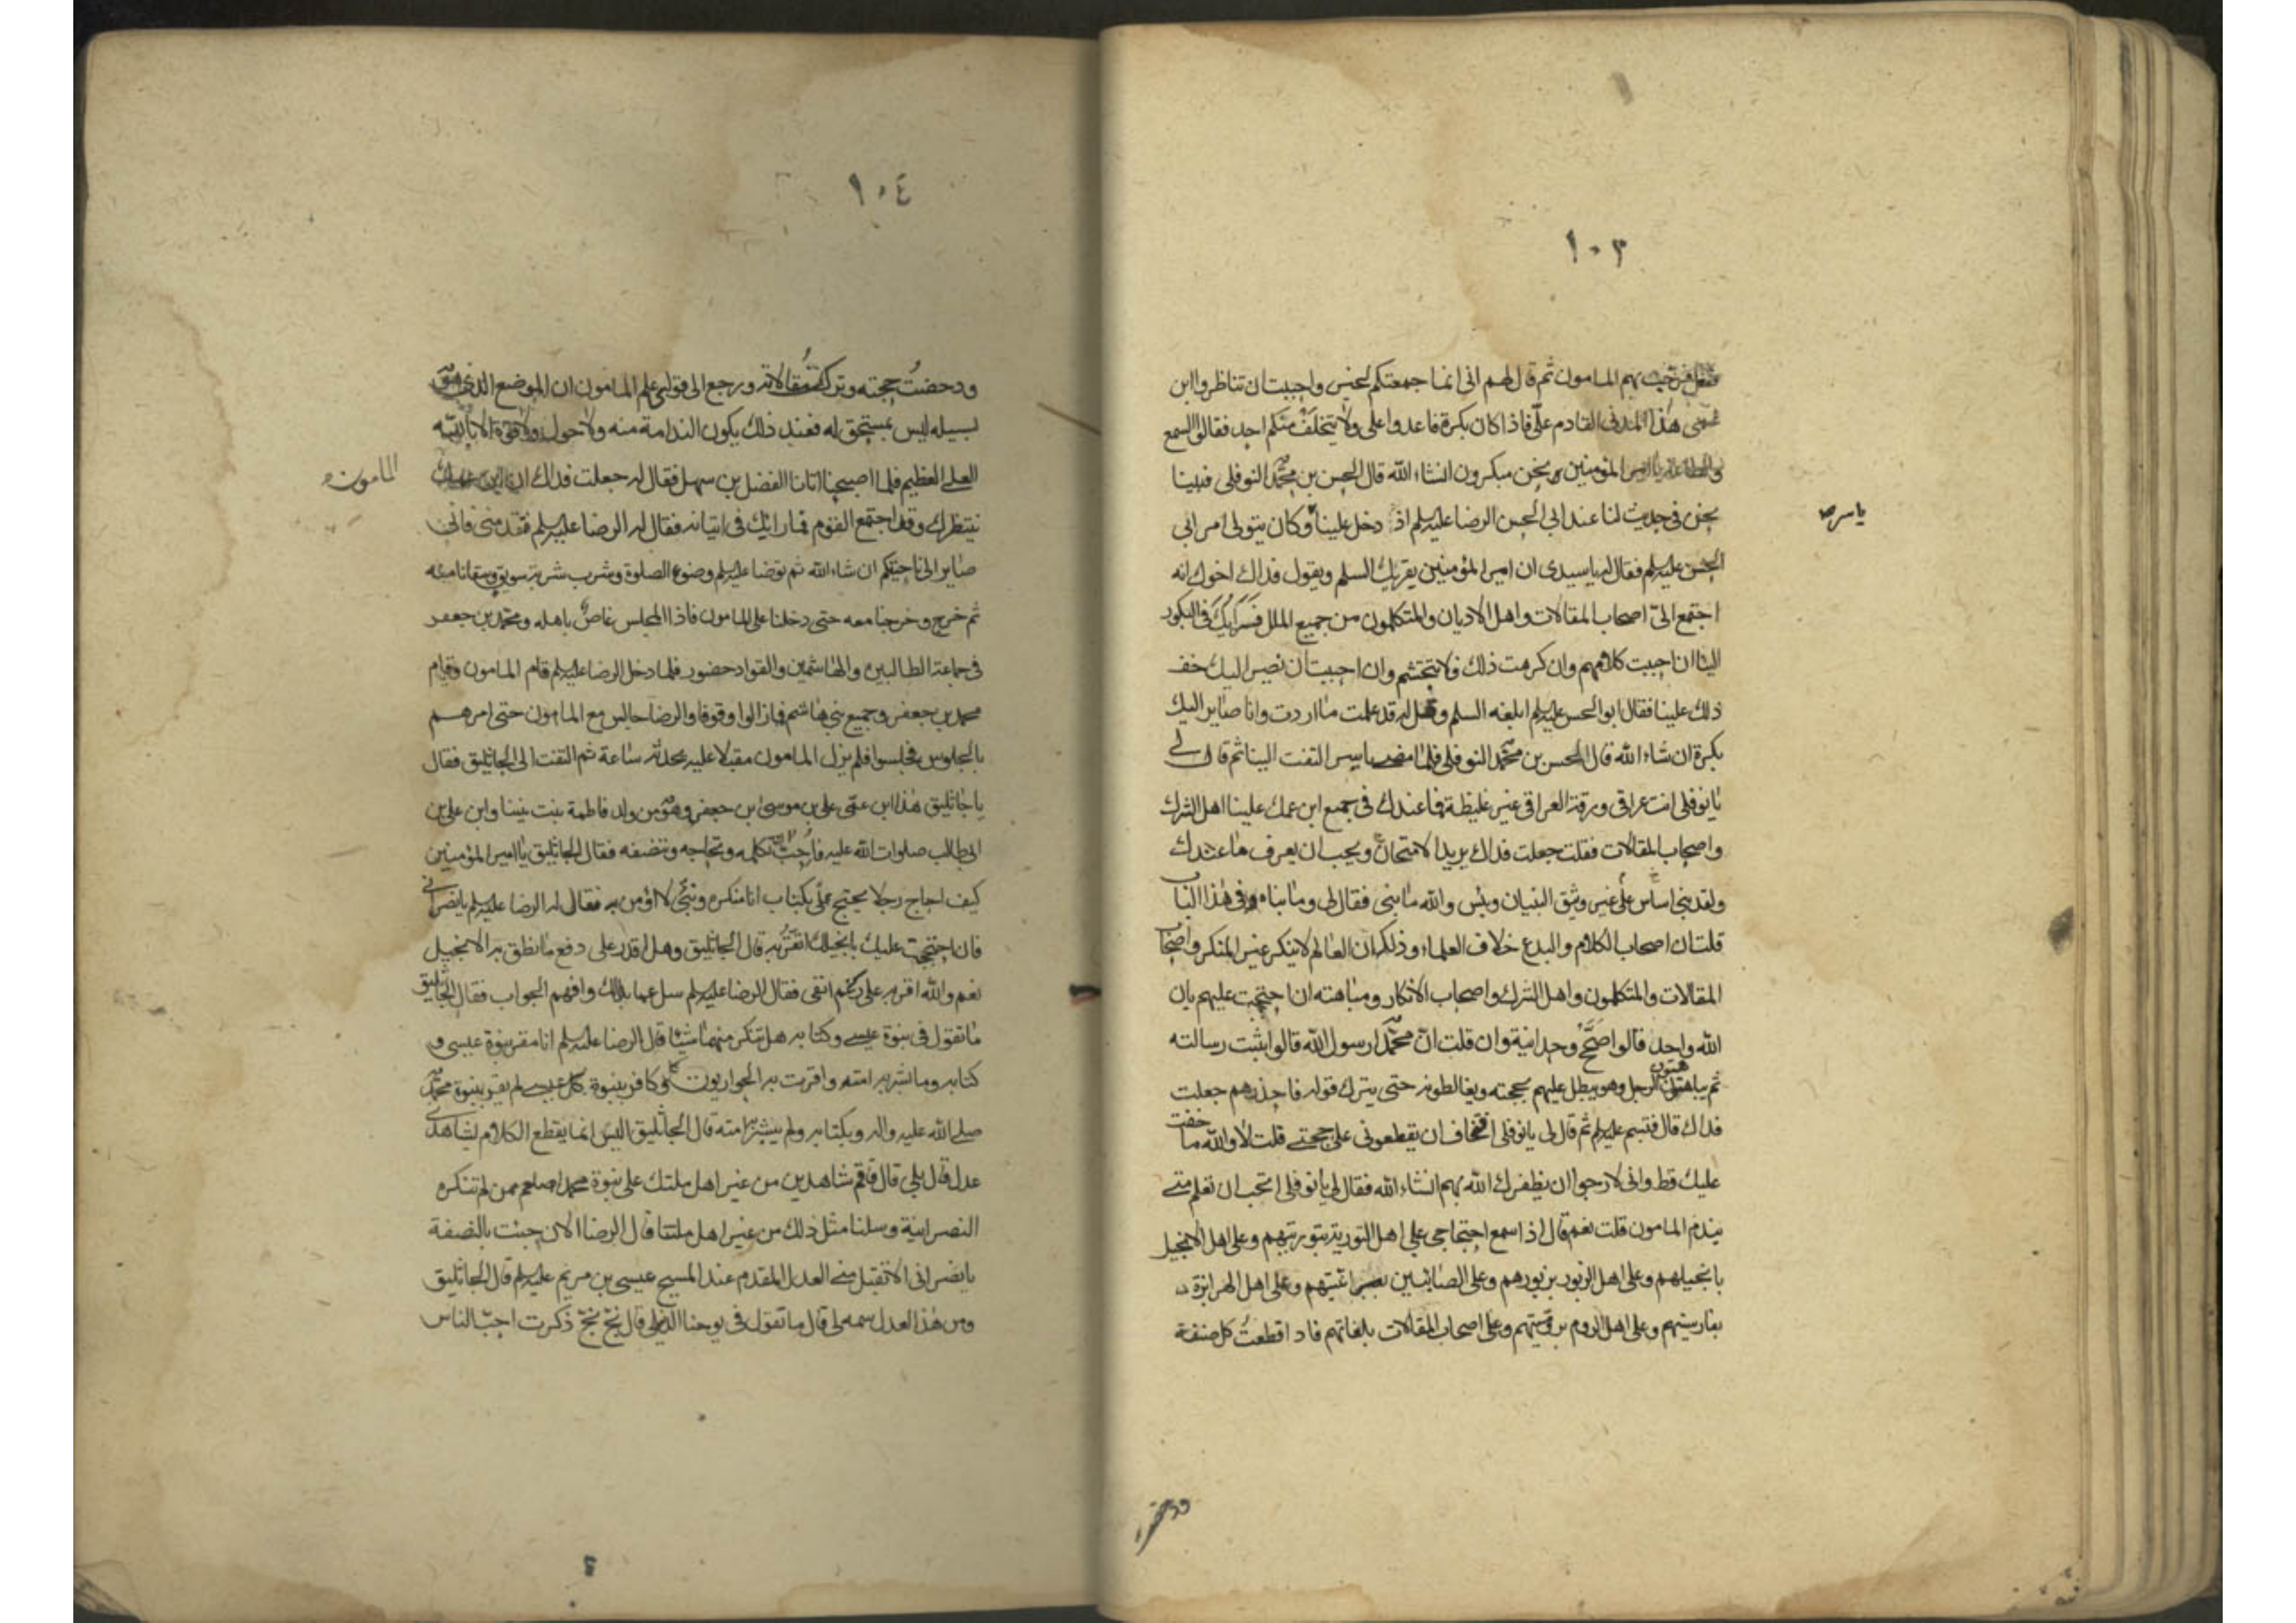 ١٠٣
ففعل فرحب بهم المامون ثم قال لهم انى انما جمعتكم لخير واحببت ان تناظروا ابن
عمى هذا المدنى القادم علّى فاذا كان بكرة فاغدوا على ولا يتخلف منكم احد فقالوا السمع
والطاعة يا امير المؤمنين ونحن مبكرون انشاء الله قال الحسن بن محمد النوفلى فبينا
نحن فى حديث لنا عند ابى الحسن الرضا عليه السلم اذ دخل علينا وكان يتولى امر ابى
ياسر صح
الحسن عليه السلم فقال له يا سيدى ان امير المؤمنين يقريك السلم ويقول فداك اخوك انه
اجتمع الىّ اصحاب المقالات واهل الاديان والمتكلمون من جميع الملل فرايك فى البكور
الينا ان احببت كلامهم وان كرهت ذلك فلا تتجشم وان احببت ان نصير اليك خف
ذلك علينا فقال ابو الحسن عليه السلم ابلغه السلم وقل له قد علمت ما اردت وانا صائر اليك
بكرة ان شاء الله قال الحسن بن محمد النوفلى فلما مضى ياسر التفت الينا ثم قال لى
يا نوفلى انت عراقى ورقة العراقى غير غليظة فما عندك فى جميع ابن عمك علينا اهل الشرك
واصحاب المقالات فقلت جعلت فداك يريد الامتحان ويحب ان يعرف ما عندك
ولقد بنى اساس على غير وثيق البنيان وبئس والله ما بنى فقال لى وما بناه فى هذا الباب
قلت ان اصحاب الكلام والبدع خلاف العلماء وذلك ان العالم لا ينكر غير المنكر واصحاب
المقالات والمتكلمون واهل الشرك واصحاب الانكار ومباهته ان احتججت عليهم بان
الله واحد قالوا صَحِّح وحدانيته وان قلت انّ محمدا رسول الله قالوا اثبت رسالته
ثم يباهتون الرجل وهو يبطل عليهم بحجته ويغالطونه حتى يترك قوله فاحذرهم جعلت
فداك قال فتبسم عليه السلم ثم قال لى يا نوفلى افتخاف ان يقطعونى على حجتى قلت لا والله ما خفت
عليك قط وانى لارجوا ان يظفرك الله بهم انشاء الله فقال لى يا نوفلى اتحب ان تعلم متى
يندم المامون قلت نعم قال اذا سمع احتجاجى على اهل التورية بتوريتهم وعلى اهل الانجيل
بانجيلهم وعلى اهل الزبور بزبورهم وعلى الصابئين بعبرانيتهم وعلى اهل الهرابزة
بفارسيتهم وعلى اهل الروم بروميتهم وعلى اصحاب المقالات بلغاتهم فاذا قطعتُ كل صنف
ودحضت
١٠٤
ودحضتُ حجته وترك مقالاته ورجع الى قولى علم المامون ان الموضع الذى هو
لسبيله ليس بمستحق له فعند ذلك يكون الندامة منه ولا حول ولا قوة الا بالله
العلى العظيم فلما اصبحنا اتانا الفضل بن سهل فقال له جعلت فداك ان ابن عمك
المامون
ينتظرك وقد اجتمع القوم فما رايك فى اتيانه فقال له الرضا عليه السلم تقدمنى فانى
صاير الى ناحيتكم ان شاء الله ثم توضا عليه السلم وضوء الصلوة وشرب شربة سويق وسقانا منه
ثم خرج وخرجنا معه حتى دخلنا على المامون فاذا المجلس غاص باهله ومحمد بن جعفر
فى جماعة الطالبين والهاشمين والقواد حضور فلما دخل الرضا عليه السلم قام المامون وقام
محمد بن جعفر وجميع بنى هاشم فما زالوا وقوفا والرضا جالس مع المامون حتى امرهم
بالجلوس فجلسوا فلم يزل المامون مقبلا عليه يحدثه ساعة ثم التفت الى الجاثليق فقال
يا جاثليق هذا ابن عمى على بن موسى ابن جعفر وهو من ولد فاطمة بنت نبينا وابن على بن
ابى طالب صلوات الله عليه فاُحب ان تكلمه وتحاجه وتنصفه فقال الجاثليق يا امير المؤمنين
كيف احاج رجلا يحتج علّى بكتاب انا منكره ونبىّ لا اؤمن به فقال له الرضا عليه السلم يا نصرانى
فان احتججت عليك بانجيلك اتقرّ به قال الجاثليق وهل اقدر على دفع ما نطق به الانجيل
نعم والله اقر به على رغم انفى فقال الرضا عليه السلم سل عما بدا لك وافهم الجواب فقال الجاثليق
ما تقول فى نبوة عيسى وكتابه هل تنكر منهما شيئا قال الرضا عليه السلم انا مقر بنبوة عيسى و
كتابه وما بشر به امته واقرت به الحواريون وكافر بنبوة كل عيسى لم يقر بنبوة محمد
صلى الله عليه واله وبكتابه ولم يبشر به امته قال الجاثليق اليس انما يقطع الكلام بشاهدى
عدل قال بلى قال فاقم شاهدين من غير اهل ملتك على نبوة محمد صلعم ممن لم تنكره
النصرانية وسلنا مثل ذلك من غير اهل ملتنا قال الرضا الان جئت بالنصفة
يا نصرانى الا تقبل منى العدل المقدم عند المسيح عيسى بن مريم عليه السلم قال الجاثليق
ومن هذا العدل سمه لى قال ما تقول فى يوحنا الديلى قال بخ بخ ذكرت احبّ الناس